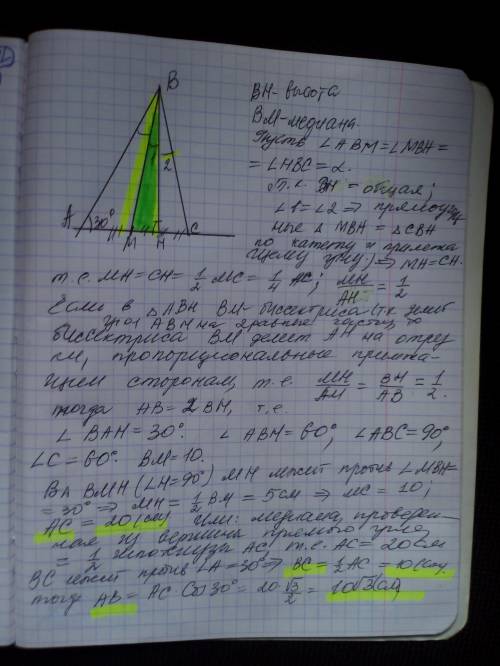 B
BH - высота
BM - медиана.
Пусть ∠ABM = ∠MBH =
= ∠HBC = α.
Т.к. BH = общая;
∠1 = ∠2 ⇒ прямоуголь
ные △ MBH = △ CBH
по катету и прилежа
щему углу; ⇒ MH = CH.
A 30° M H C
1 2
т.е. MH = CH = 1/2 MC = 1/4 AC; MH/AH = 1/2
Если в △ABH BM - биссектриса (т.к. делит
угол ABH на 2 равные части), то
биссектриса BM делит AH на отрез
ки, пропорциональные прилежа-
щим сторонам, т.е. MH/AM = BH/AB = 1/2.
тогда AB = 2 BH, т.е.
∠ BAH = 30°. ∠ ABH = 60°, ∠ABC = 90°,
∠C = 60°. BM = 10.
В △ BMH (∠H = 90°) MH лежит против ∠MBH =
= 30° ⇒ MH = 1/2 BM = 5 см ⇒ MC = 10;
AC = 20 (см) Или: медиана, проведен-
ная из вершины прямого угла,
= 1/2 гипотенузы AC, т.е. AC = 20 см
BC лежит против ∠A = 30° ⇒ BC = 1/2 AC = 10 (см),
тогда AB = AC · Cos 30° = 20 · √3/2 = 10√3 (см)